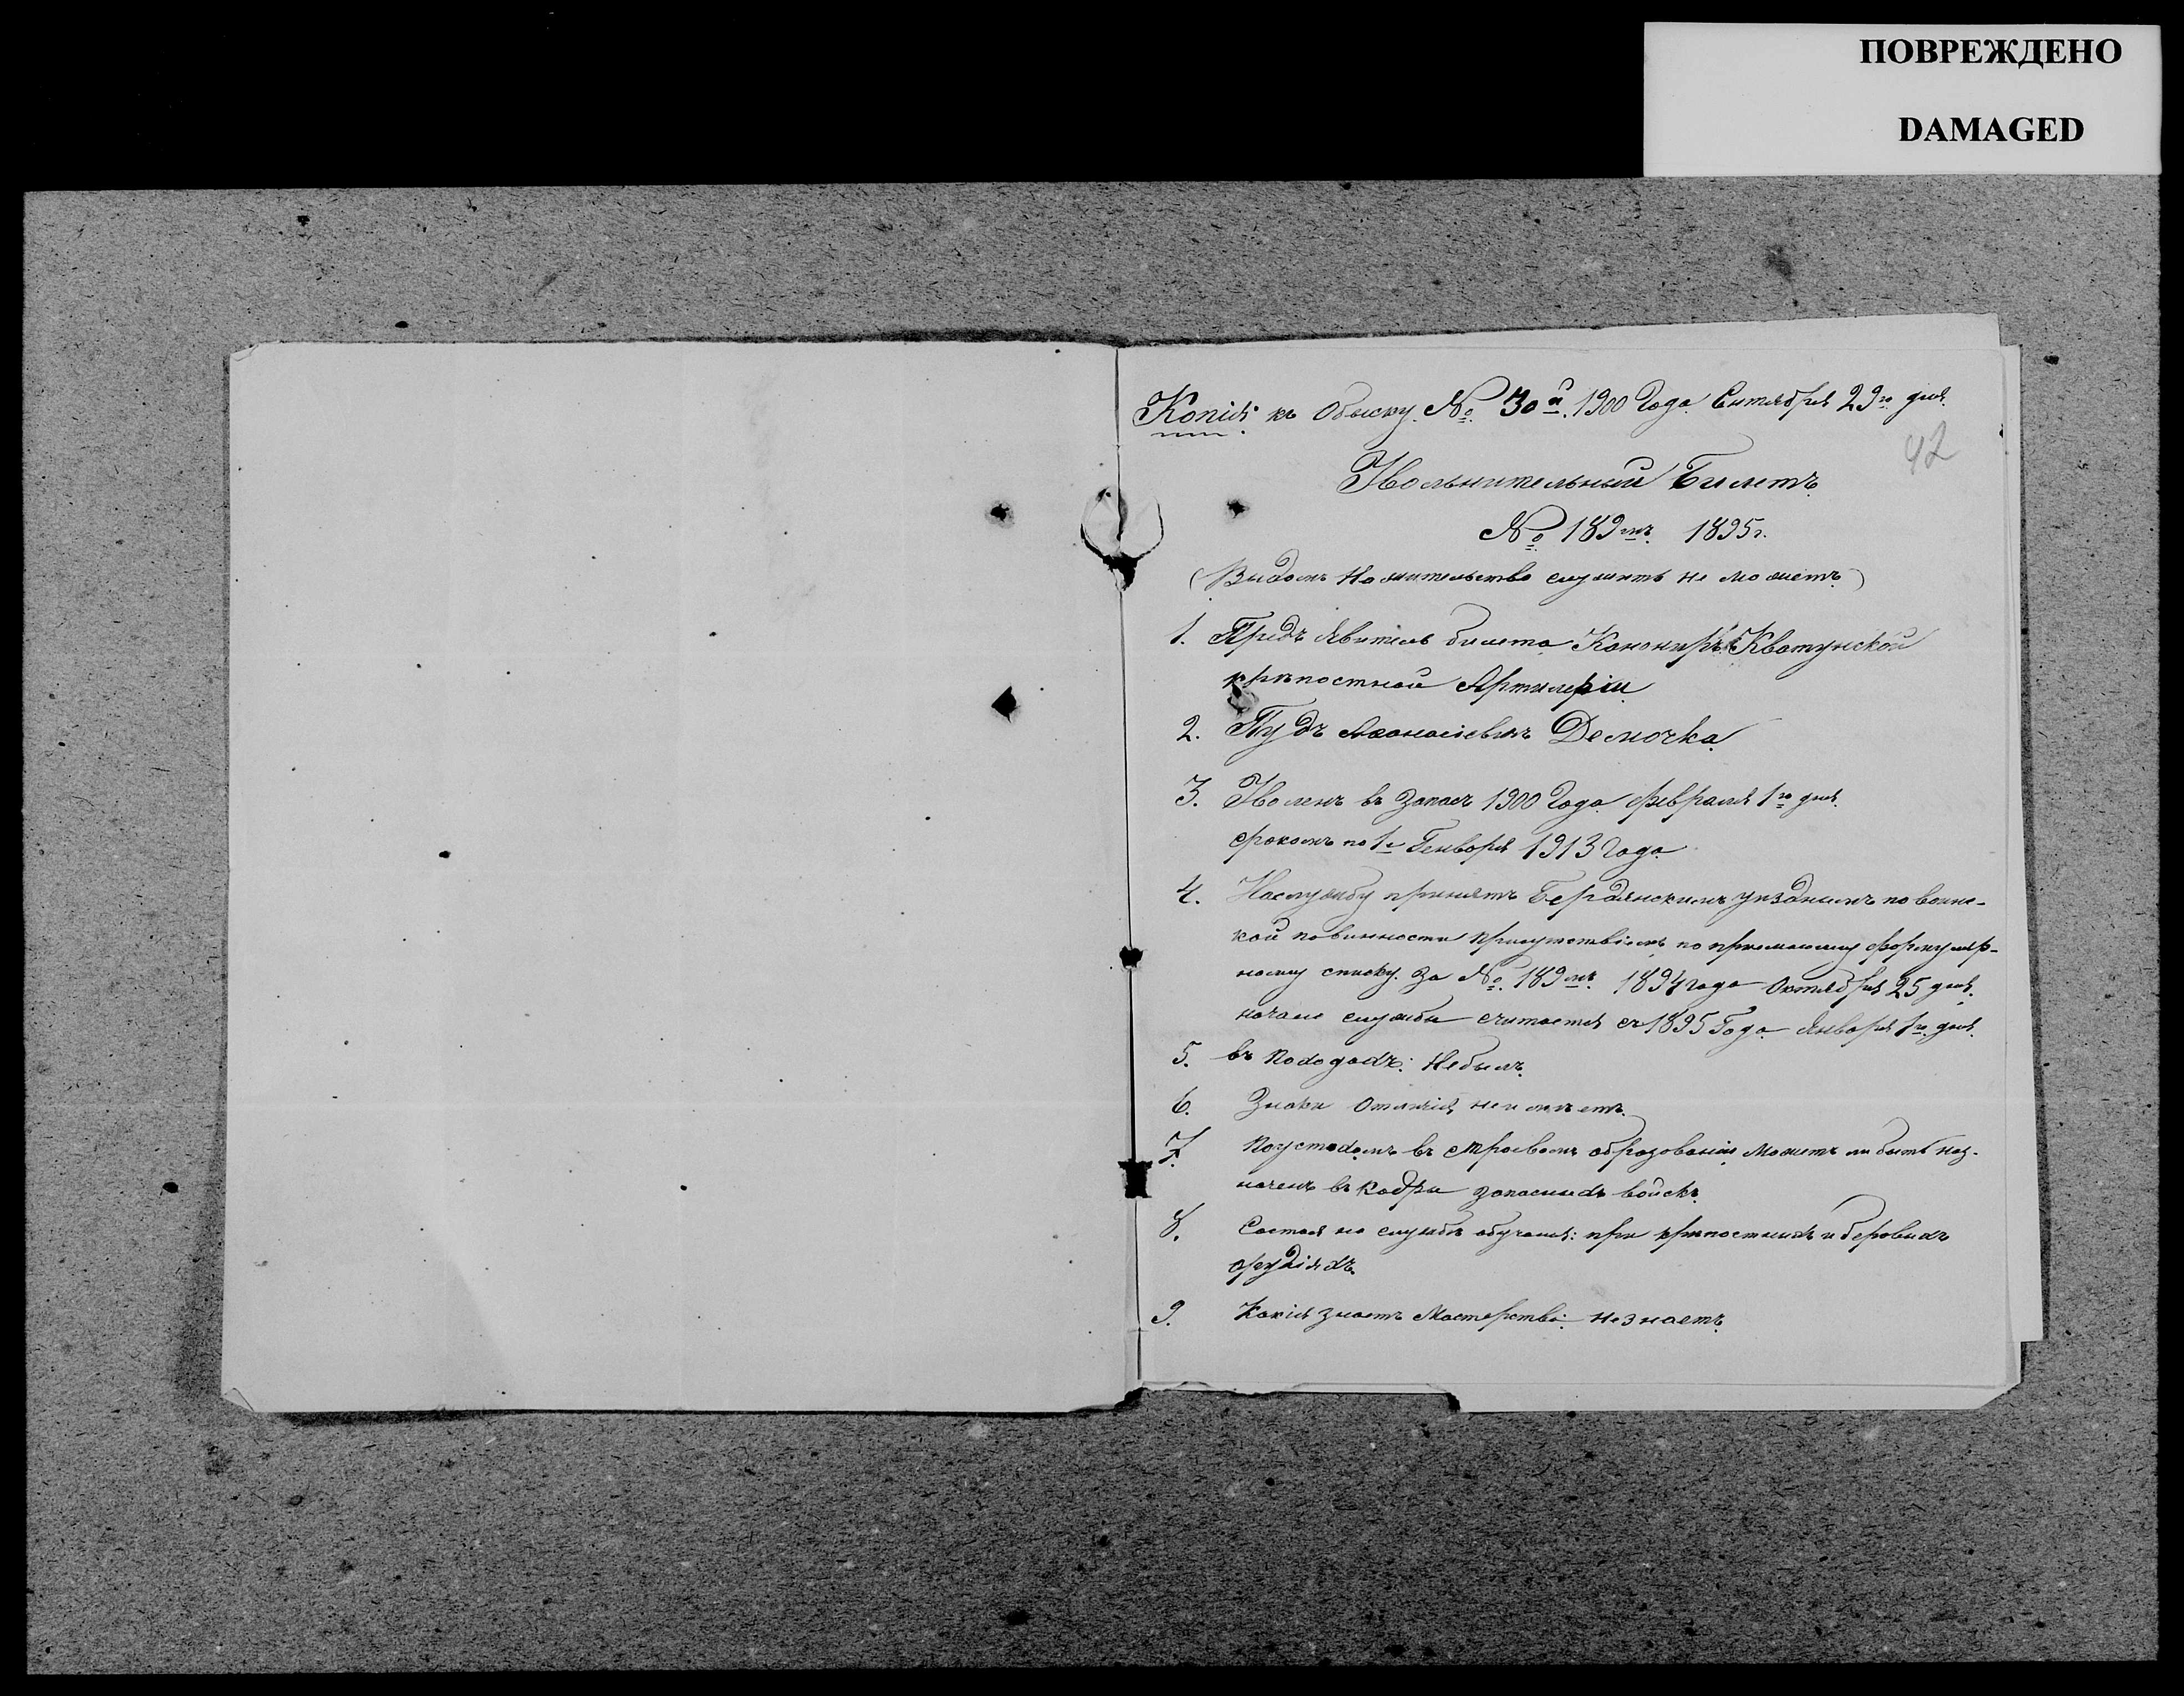 ПОВРЕЖДЕНО
DAMAGED
Копія къ Обыску № 30й. 1900 Года Сентября 29го дня.
42
Увольнительный Билетъ
№ 189мъ 1895г.
(Видомъ На жительство служить не можетъ)
1. Предъ Явитель билета Канониръ Квантунской
крѣпостной Артилеріи
2. Пудъ Афанасіевичъ Демочка
3. Уволенъ въ Запасъ 1900 Года февраля 1го дня.
срокомъ по 1е Генворя 1913 Года
4. На службу принятъ Бердянскимъ уѣзднымъ по воинс-
кой повинности присутствіемъ по пріемному формуляр-
ному списку За № 189мъ 1894 года Октября 25 дня.
начало службы считается съ 1895 Года Января 1го дня.
5. въ Походахъ: Небылъ.
6. Знаки Отличія неимѣетъ.
7. въ строевомъ образованіи Можетъ ли быть наз-
наченъ въ Кадры запасныхъ войскъ.
8. Состоя на службѣ обучался: при крѣпостныхъ и береговыхъ
орудіяхъ.
9. Какія знаетъ Мастерства: Не знаетъ.